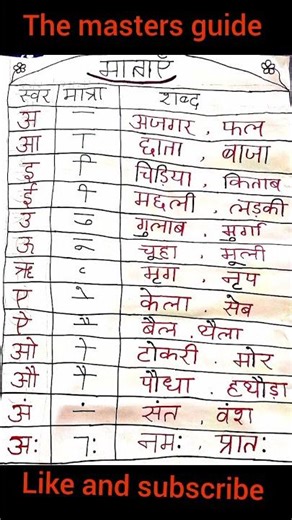 The masters guide
मात्राएँ
स्वर मात्रा शब्द
अ — अजगर, फल
आ ा छाता, बाजा
इ ि चिड़िया, किताब
ई ी मछली, लड़की
उ ु गुलाब, मुर्गा
ऊ ू चूहा, मूली
ऋ ृ मृग, नृप
ए े केला, सेब
ऐ ै बैल, थैला
ओ ो टोकरी, मोर
औ ौ पौधा, हथौड़ा
अं ं संत, वंश
अः ाः नमः, प्रातः
Like and subscribe